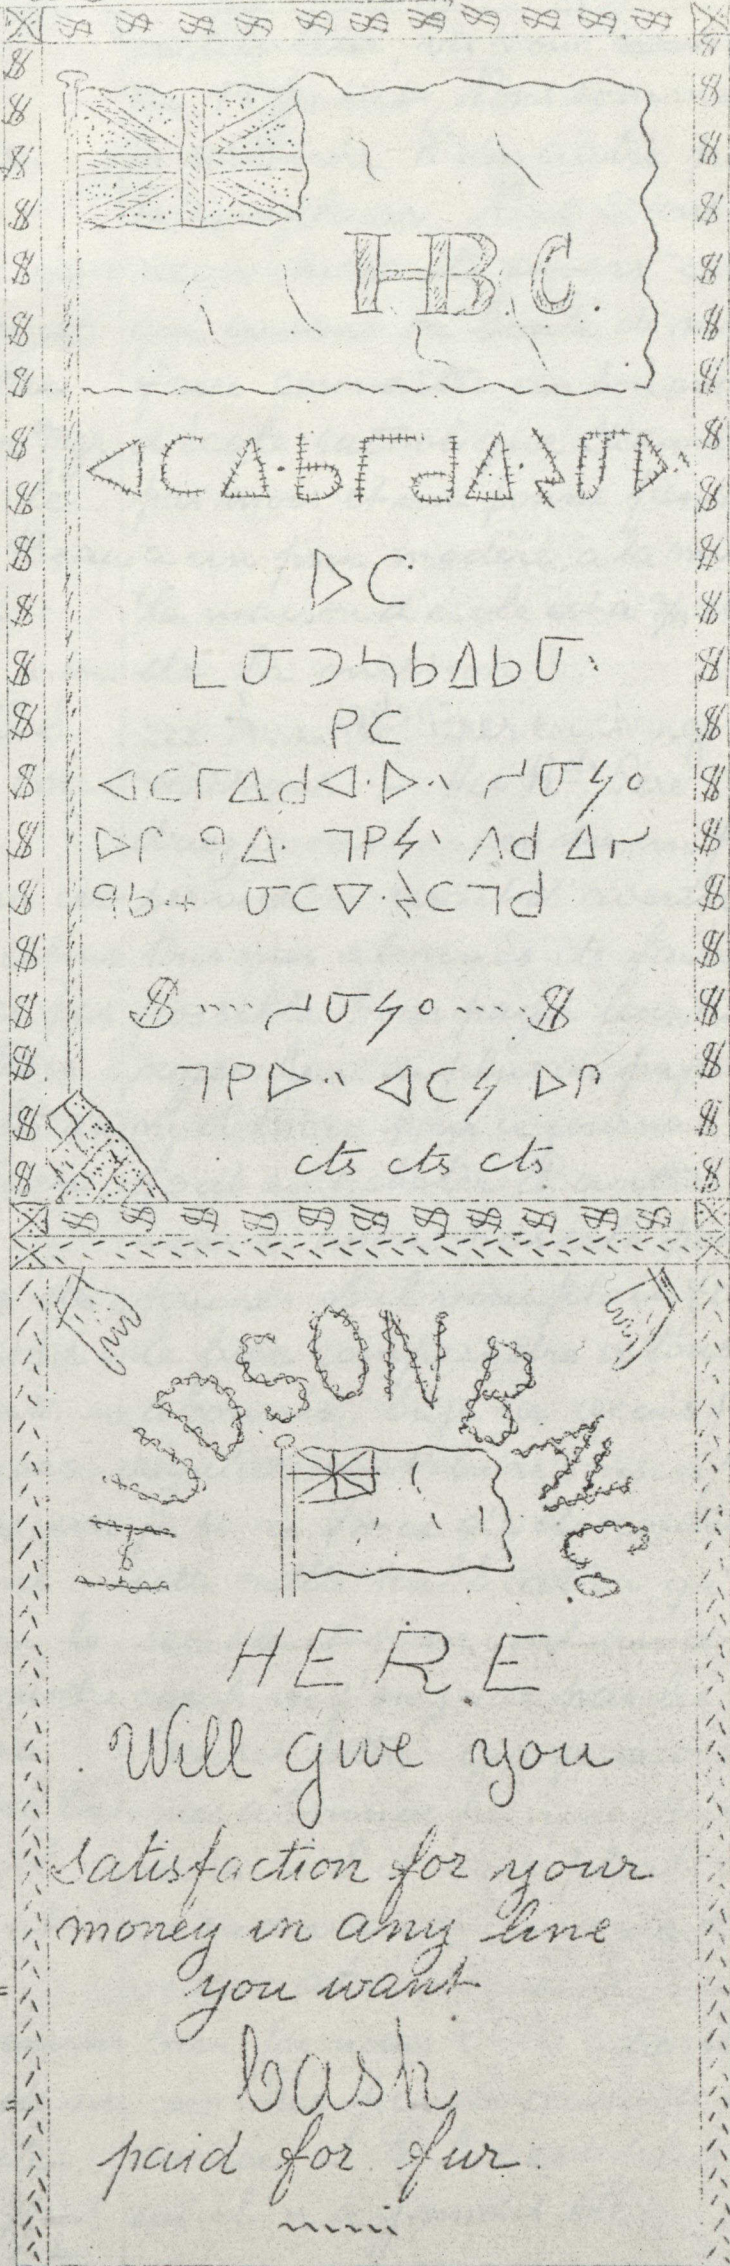 H.B.C.
ᐊᑕᐃᐧᑲᒥᑯᐃᐧᔨᓂᐅᐧᐠ
ᐅᑕ
ᒪᓂᑐᓴᑲᐃᑲᓂᐠ
ᑭᑕ
ᐊᑕᒥᐃᑯᐊᐧᐅᐧᐠ ᓱᓂᔭᐤ
ᐅᒋ ᑫᐃᐧ ᒣᑭᔭᐠ ᐱᑯ ᐃᓯ
ᑫᑲᐧᕀ ᓂᑕᐁᐧᔨᑕᒣᑯ
$ .... ᓱᓂᔭᐤ .... $
ᒣᑭᐅᐧᐠ ᐊᑕᔭ ᐅᒋ
cts cts cts
HUDSON BAY CO.
HERE
Will give you
satisfaction for your
money in any line
you want
Cash
paid for fur.